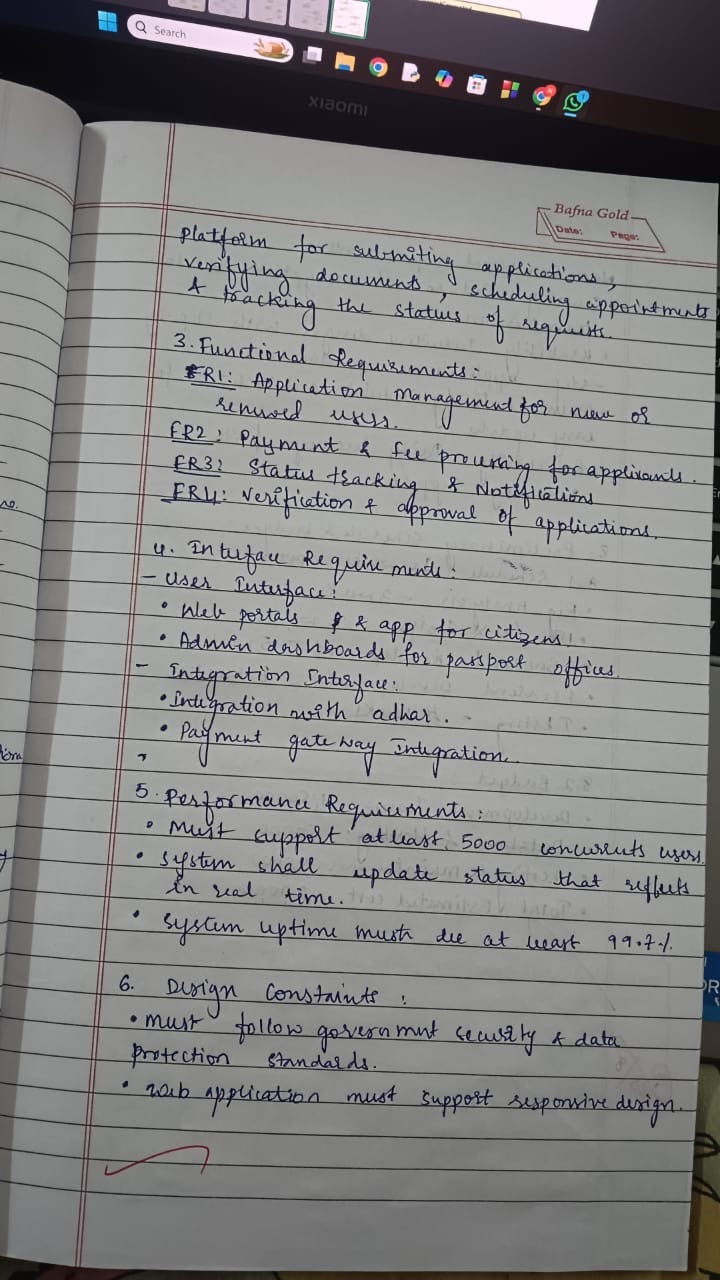 Search
xiaomi
Bafna Gold
Date: Page:
platform for submiting applications,
verifying documents, scheduling appointments
& tracking the status of requests.
3. Functional Requirements:
FR1: Application Management for new or
renewed users.
FR2: Payment & fee processing for applicants.
FR3: Status tracking & Notifications
FR4: Verification & approval of applications.
4. Interface Requirements:
- User Interface:
• Web portals & app for citizens
• Admin dashboards for passport offices.
- Integration Interface:
• Integration with adhar.
• Payment gateway Integration.
5. Performance Requirements:
• Must support at least 5000 concurrents users.
• System shall update status that reflects
in real time.
• System uptime must be at least 99.7%
6. Design Constaints:
• Must follow government security & data
protection standards.
• web application must support responsive design.